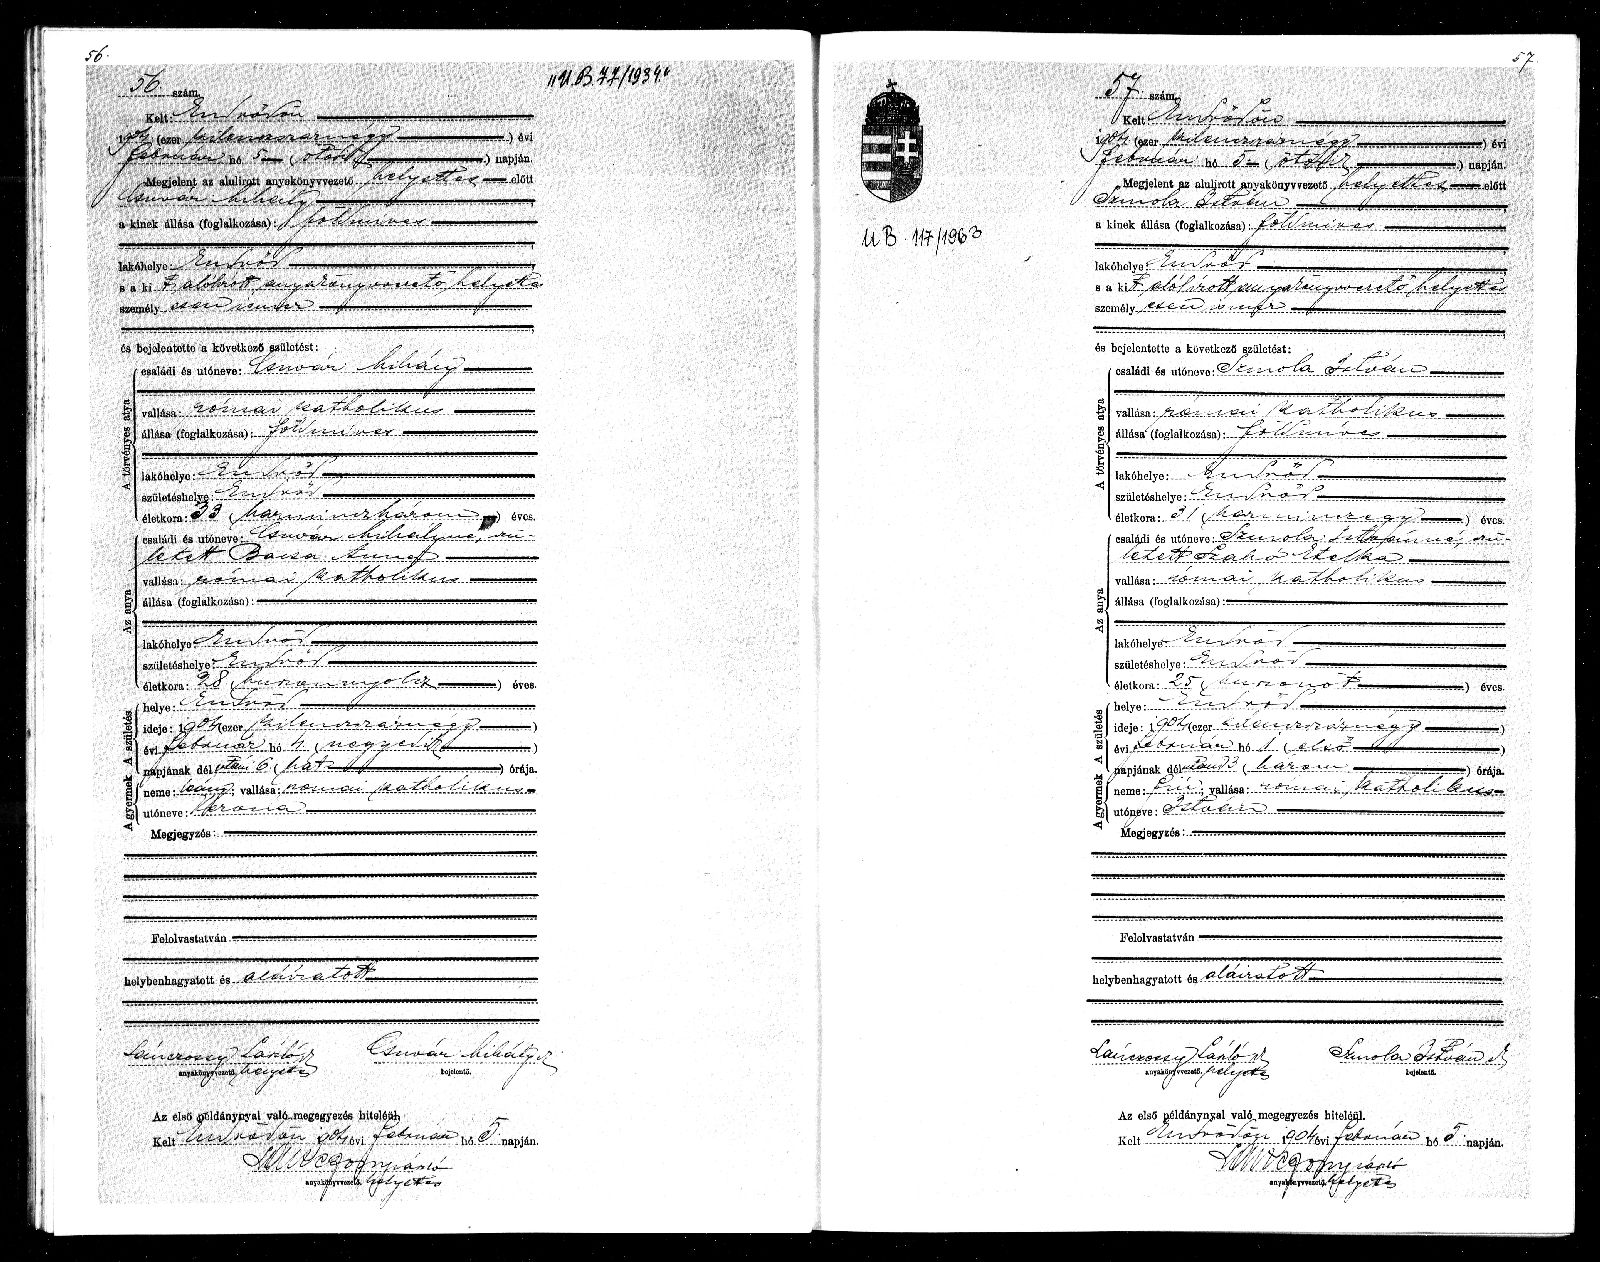 56.
56 szám.
„U.B. 77/1934.“
Kelt: Endrődön
1904 (ezer kilenczszáznégy) évi
február hó 5 (ötödik) napján.
Megjelent az alulirott anyakönyvvezető helyettes előtt
Csuvár Mihály
a kinek állása (foglalkozása): földmíves
lakóhelye: Endrőd
s a ki t alólirott anyakönyvvezető helyette-
személy esen ismer
és bejelentette a következő születést:
A törvényes atya
családi és utóneve: Csuvár Mihály
vallása: római katholikus
állása (foglalkozása): földmíves
lakóhelye: Endrőd
születéshelye: Endrőd
életkora: 33 (harminczhárom) éves.
Az anya
családi és utóneve: Csuvár Mihályné, szü-
letett Bacsa Anna
vallása: római katholikus
állása (foglalkozása):
lakóhelye: Endrőd
születéshelye: Endrőd
életkora: 28 (huszonnyolcz) éves.
A születés
helye: Endrőd
ideje: 1904 (ezer kilenczszáznégy)
évi február hó 4 (negyedik)
napjának délutáni 6 (hat) órája.
A gyermek
neme: leány; vallása: római katholikus
utóneve: Verona
Megjegyzés:
Felolvastatván
helybenhagyatott és aláiratott
Lánczossy László Csuvár Mihály
anyakönyvvezető. helyettes bejelentő.
Az első példánynyal való megegyezés hiteléül.
Kelt Endrődön 1904 évi február hó 5 napján.
anyakönyvvezető. helyettes
57.
57 szám.
U B. 117/1963
Kelt Endrődön
1904 (ezer kilenczszáznégy) évi
február hó 5 (ötödik) napján.
Megjelent az alulirott anyakönyvvezető helyettes előtt
Szmola István
a kinek állása (foglalkozása): földmíves
lakóhelye: Endrőd
s a ki t alólirott anyakönyvvezető helyette-
személy esen ismer
és bejelentette a következő születést:
A törvényes atya
családi és utóneve: Szmola István
vallása: római katholikus
állása (foglalkozása): földmíves
lakóhelye: Endrőd
születéshelye: Endrőd
életkora: 31 (harminczegy) éves.
Az anya
családi és utóneve: Szmola Istvánné, szü-
letett Szabó Etelka
vallása: római katholikus
állása (foglalkozása):
lakóhelye: Endrőd
születéshelye: Endrőd
életkora: 25 (huszonöt) éves.
A születés
helye: Endrőd
ideje: 1904 (ezer kilenczszáznégy)
évi február hó 1 (első)
napjának dél 3 (három) órája.
A gyermek
neme: fiú; vallása: római katholikus
utóneve: István
Megjegyzés:
Felolvastatván
helybenhagyatott és aláiratott
Lánczossy László Szmola István
anyakönyvvezető. helyettes bejelentő.
Az első példánynyal való megegyezés hiteléül.
Kelt Endrődön 1904 évi február hó 5 napján.
anyakönyvvezető. helyettes